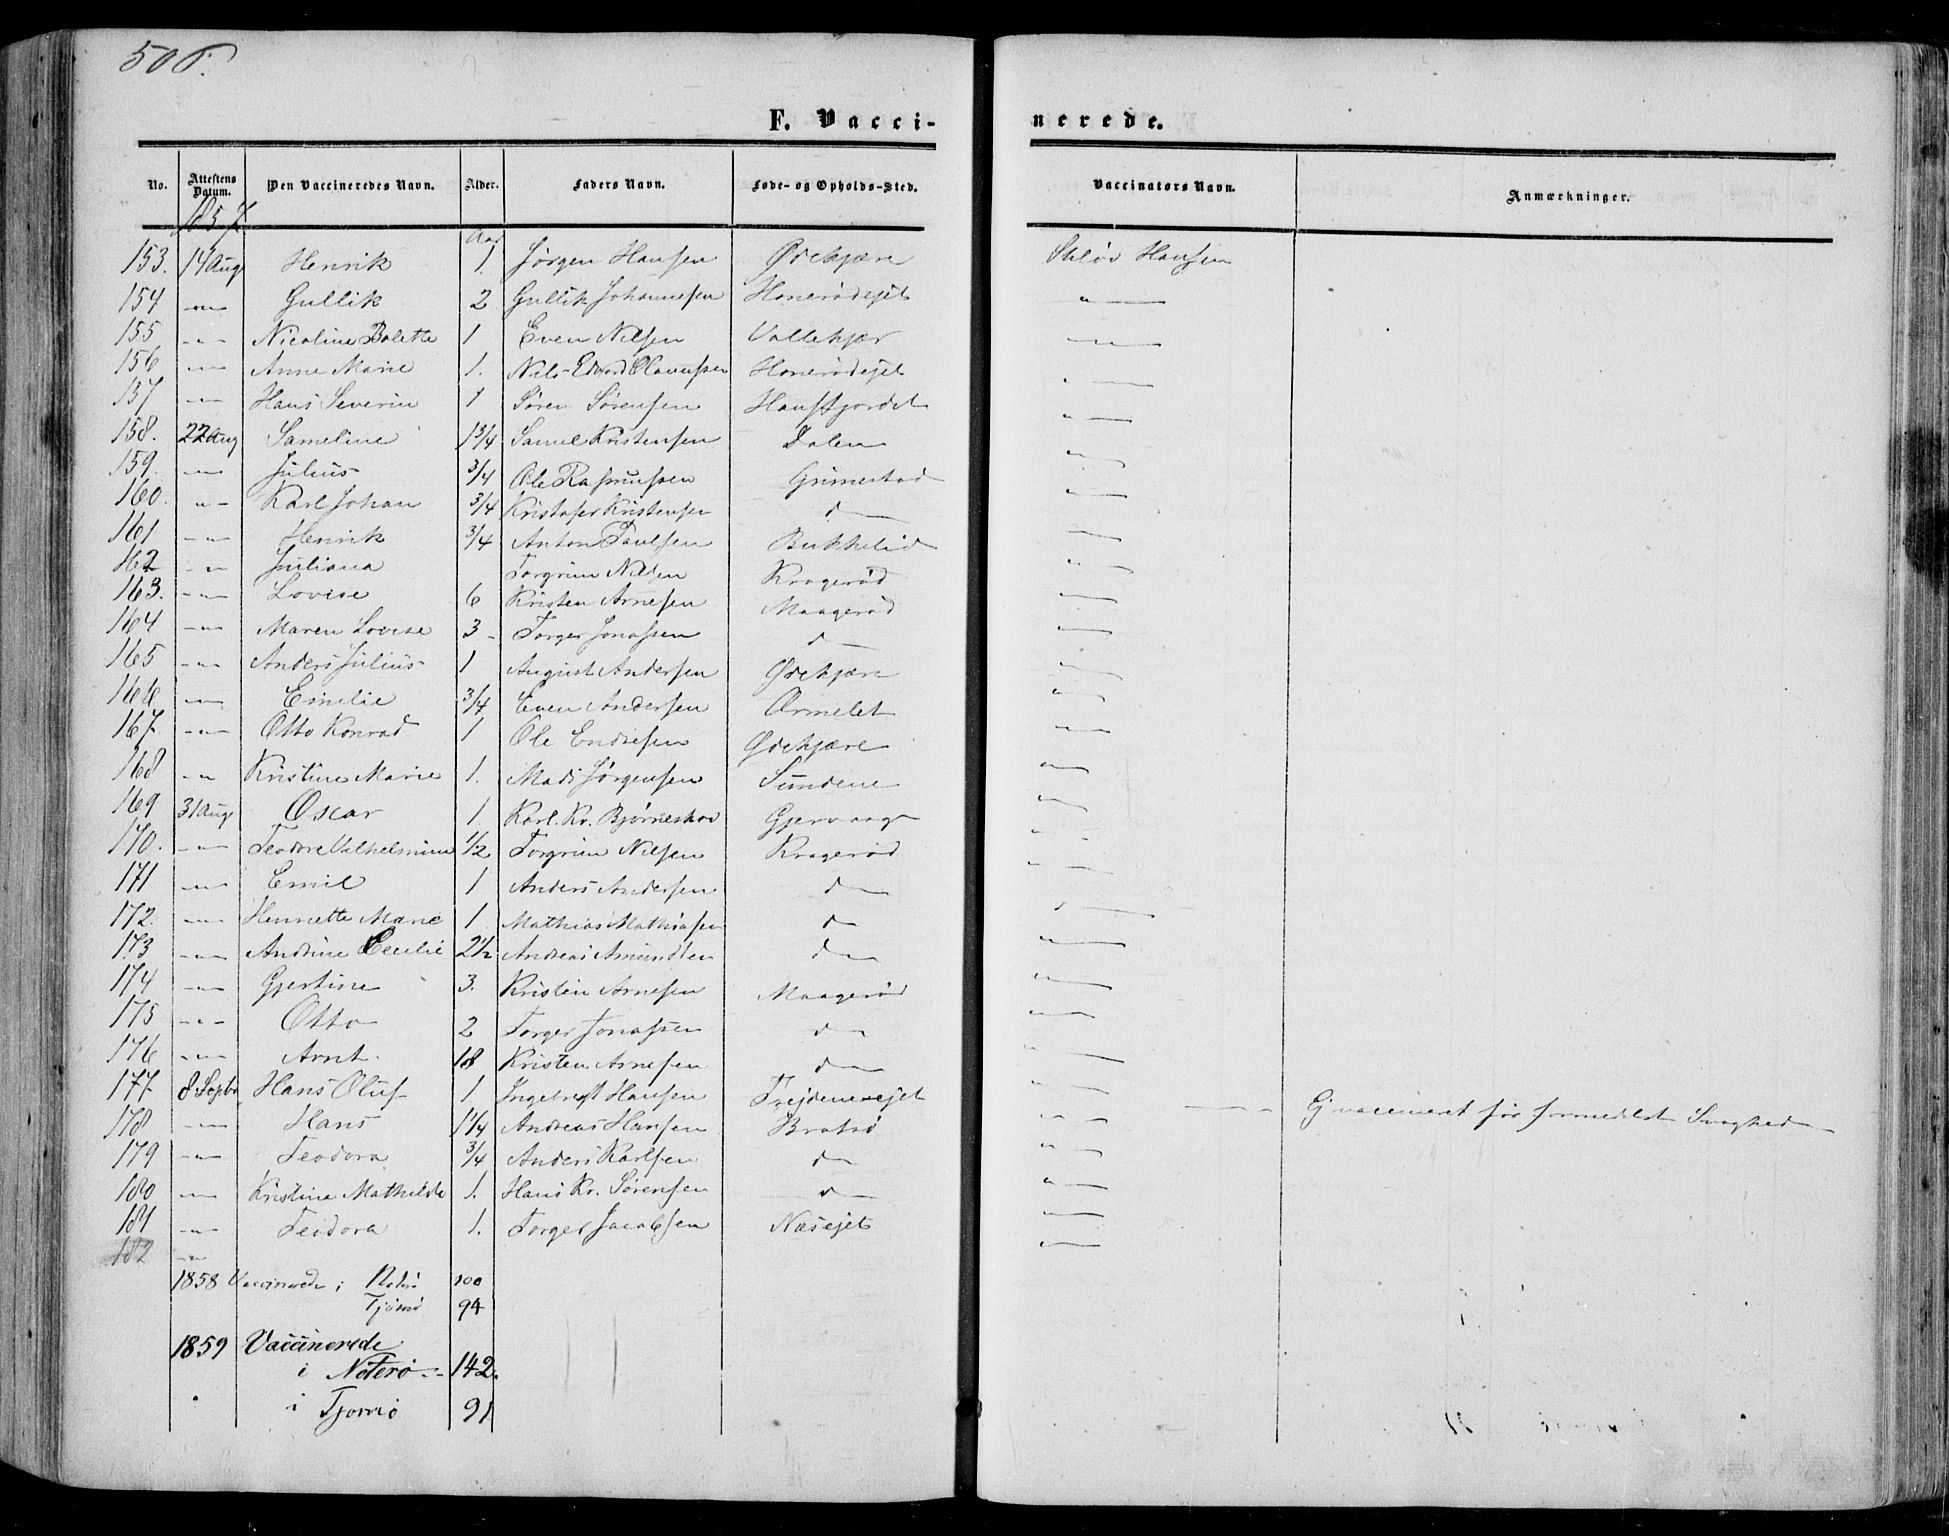 506.
F. Vaccinerede.
No. | Attestens Datum. | Den Vaccineredes Navn. | Alder. | Faders Navn. | Føde- og Opholds-Sted. | Vaccinatørs Navn. | Anmærkninger.
1857
Aar
153. 14 Aug Henrik 1. Jørgen Hansen Ødekjære Hansen
154 -"- Gullik 2 Gullik Johannesen Honerødejet -"-
155 -"- Nicoline Bolette 1 Even Nilsen Vollekjær -"-
156 -"- Anne Marie 1. Nils Edvard Olaussen Honerødejet -"-
157 -"- Hans Severin 1 Søren Sørensen Haufjordet -"-
158. 22 Aug Sameline 1 3/4 Samuel Kristensen Dalen -"-
159. -"- Julius 3/4 Ole Rasmussen Grimestad -"-
160. -"- Karl Johan 3/4 Kristofer Kristensen d -"-
161 -"- Henrik 3/4 Anton Paulsen Bekkelid -"-
162 -"- Juliana Torgrim Nilsen Kragerød -"-
163. -"- Lovise 6 Kristen Arnesen Maagerød -"-
164 -"- Maren Lovise 3 - Torger Jonassen d -"-
165 -"- Anders Julius 1 August Andersen Ødekjære -"-
166 -"- Emelie 3/4 Even Andersen Ormelet -"-
167. -"- Otto Konrad 1 Ole Endresen Ødekjære -"-
168 -"- Kristine Marie 1. Mads Jørgensen Sundene -"-
169 31 Aug Oscar 1. Karl. Kr. Bjørneskov Gjervaag -"-
170. -"- Teodore Vilhelmine 1/2 Torgrim Nilsen Kragerød -"-
171 -"- Emil 1 Anders Andersen d -"-
172. -"- Henriette Marie 1. Mathias Mathiasen d -"-
173 -"- Andrine Cecilie 2 1/2 Andreas Amundsen d -"-
174 -"- Gjertine 3. Kristen Arnesen Maagerød -"-
175 -"- Otto 2 Torger Jonassen d -"-
176 -"- Arnt. 18 Kristen Arnesen d -"-
177. 8 Septbr Hans Oluf 1 Ingebregt Hansen Trejdeneejet -"-
178 -"- Hans 1 1/4 Andreas Hansen Bratsø -"- Ej vaccineret før formedelst Svaghed
179 -"- Teodora 3/4 Anders Karlsen d -"-
180 -"- Kristine Mathilde 1. Hans Kr. Sørensen d -"-
181 -"- Teodora 1. Torger Jacobsen Næsejet -"-
182 -"-
1858 Vaccinerede i Noterø 100
Tjømø 94
1859 Vaccinerede
i Noterø - 142.
" i Tjømø 91